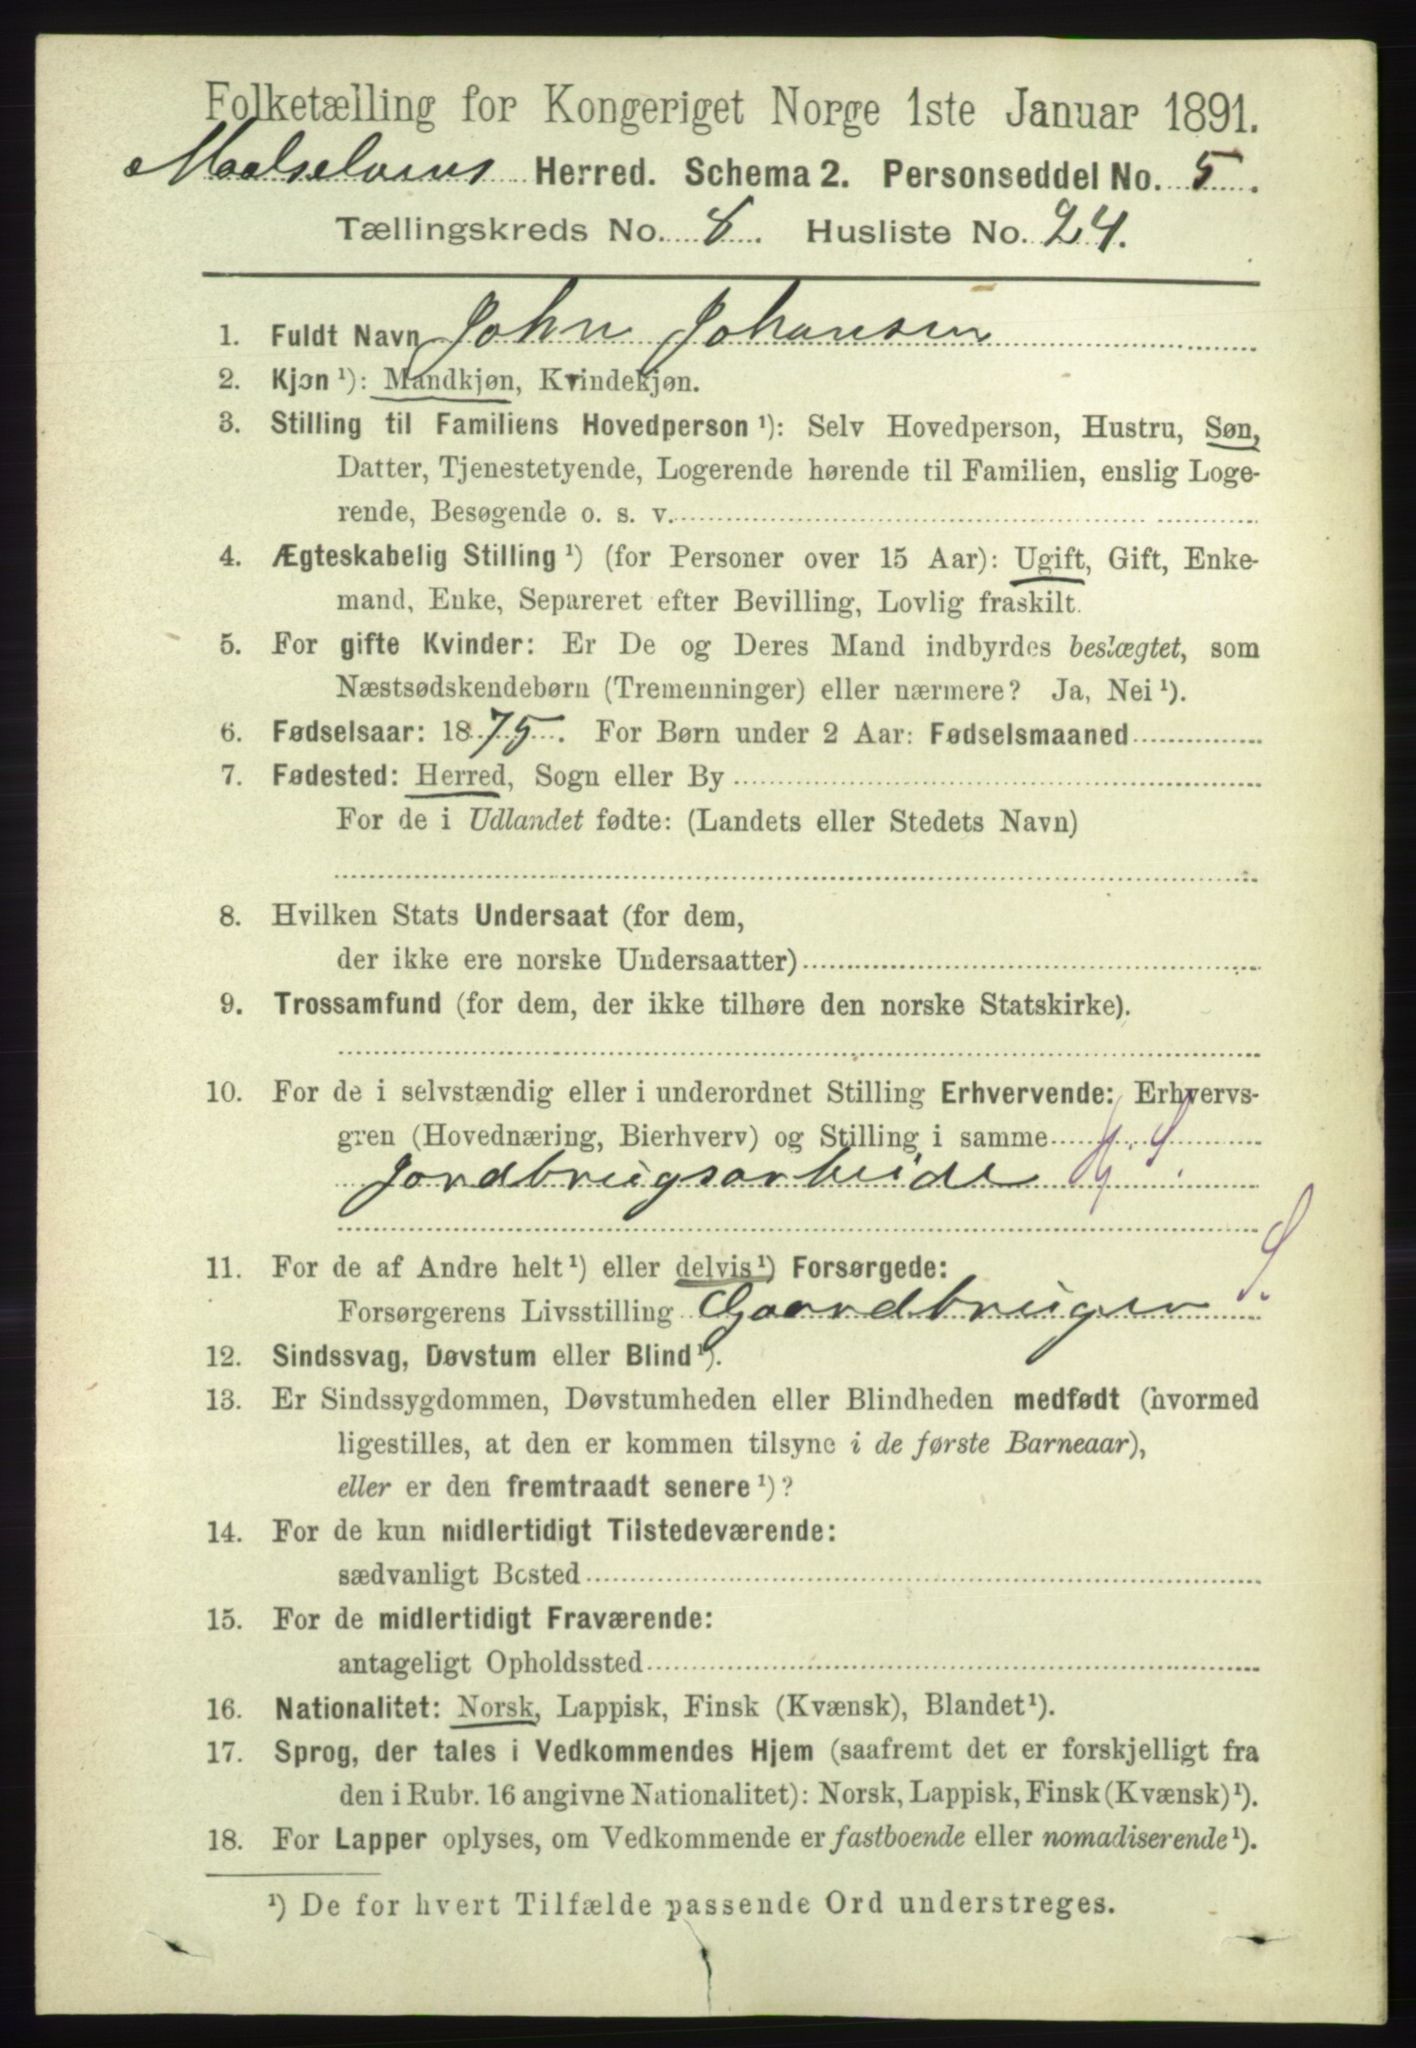 Folketælling for Kongeriget Norge 1ste Januar 1891.
Maalselvens Herred. Schema 2. Personseddel No. 5.
Tællingskreds No. 6. Husliste No. 24.
1. Fuldt Navn John Johansen
2. Kjøn ¹): Mandkjøn, Kvindekjøn.
3. Stilling til Familiens Hovedperson ¹): Selv Hovedperson, Hustru, Søn,
Datter, Tjenestetyende, Logerende hørende til Familien, enslig Loge-
rende, Besøgende o. s. v.
4. Ægteskabelig Stilling ¹) (for Personer over 15 Aar): Ugift, Gift, Enke-
mand, Enke, Separeret efter Bevilling, Lovlig fraskilt.
5. For gifte Kvinder: Er De og Deres Mand indbyrdes beslægtet, som
Næstsødskendebørn (Tremenninger) eller nærmere? Ja, Nei ¹).
6. Fødselsaar: 1875. For Børn under 2 Aar: Fødselsmaaned
7. Fødested: Herred, Sogn eller By
For de i Udlandet fødte: (Landets eller Stedets Navn)
8. Hvilken Stats Undersaat (for dem,
der ikke ere norske Undersaatter)
9. Trossamfund (for dem, der ikke tilhøre den norske Statskirke).
10. For de i selvstændig eller i underordnet Stilling Erhvervende: Erhvervs-
gren (Hovednæring, Bierhverv) og Stilling i samme
Jordbrugsarbeide
11. For de af Andre helt ¹) eller delvis ¹) Forsørgede:
Forsørgerens Livsstilling Gaardbruger
12. Sindssvag, Døvstum eller Blind ¹).
13. Er Sindssygdommen, Døvstumheden eller Blindheden medfødt (hvormed
ligestilles, at den er kommen tilsyne i de første Barneaar),
eller er den fremtraadt senere ¹)?
14. For de kun midlertidigt Tilstedeværende:
sædvanligt Bosted
15. For de midlertidigt Fraværende:
antageligt Opholdssted
16. Nationalitet: Norsk, Lappisk, Finsk (Kvænsk), Blandet ¹).
17. Sprog, der tales i Vedkommendes Hjem (saafremt det er forskjelligt fra
den i Rubr. 16 angivne Nationalitet): Norsk, Lappisk, Finsk (Kvænsk) ¹).
18. For Lapper oplyses, om Vedkommende er fastboende eller nomadiserende ¹).
¹) De for hvert Tilfælde passende Ord understreges.